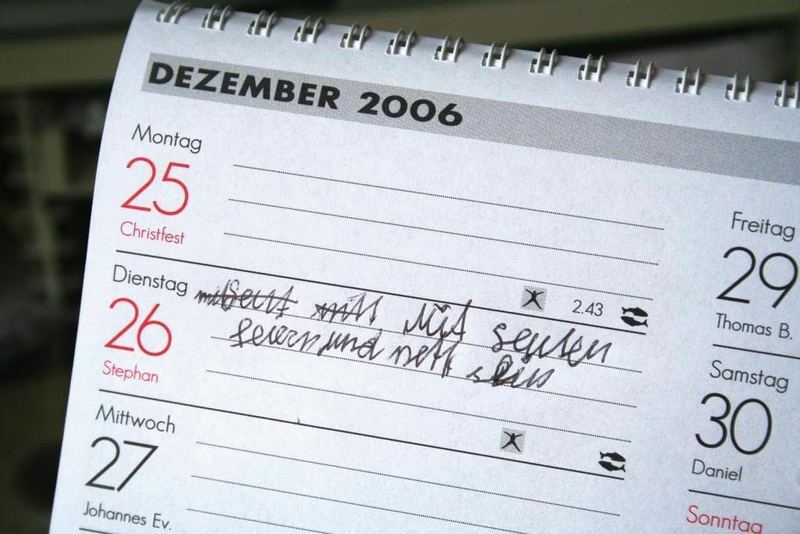 DEZEMBER 2006
Montag
25
Christfest
2.43
Dienstag
26
Stephan
mit
feiern und nett sein
Mittwoch
27
Johannes Ev.
Freitag
29
Thomas B.
Samstag
30
Daniel
Sonntag